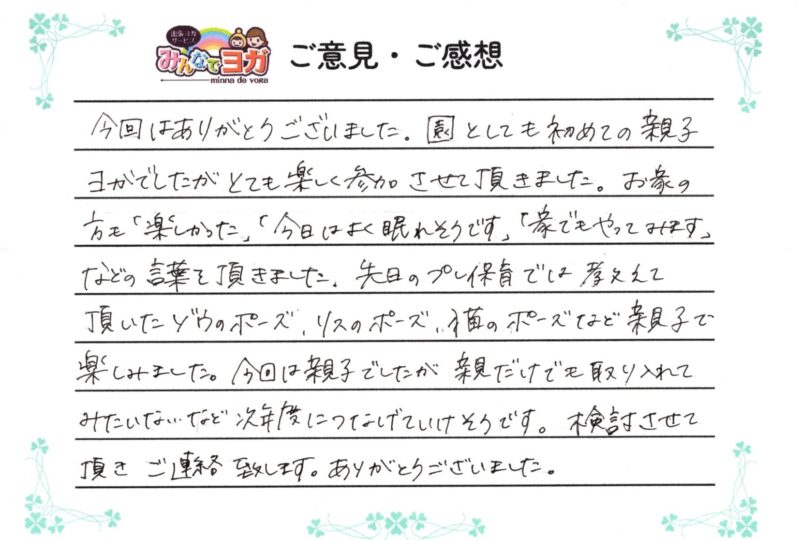 出張ヨガ
サービス
みんなでヨガ
minna de YOGA
ご意見・ご感想
今回はありがとうございました。園としても初めての親子
ヨガでしたがとても楽しく参加させて頂きました。お家の
方も「楽しかった」「今日はよく眠れそうです」「家でもやってみます」
などの言葉を頂きました。先日のプレ保育では教ええて
頂いたゾウのポーズ、リスのポーズ、猫のポーズなど親子で
楽しみました。今回は親子でしたが親だけでも取り入れて
みたいな…など次年度につなげていけそうです。検討させて
頂きご連絡致します。ありがとうございました。